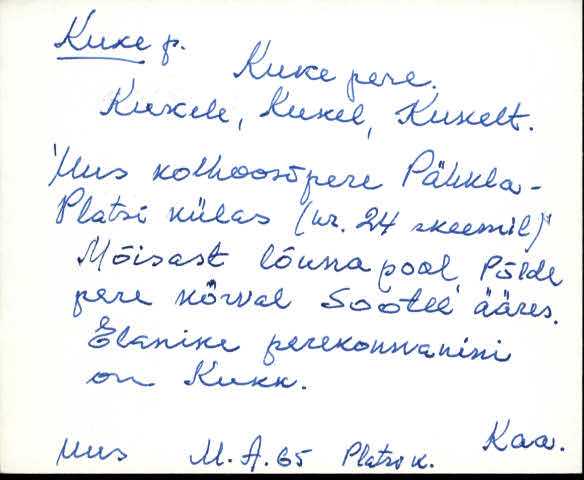 Kuke p.
Kuke pere.
Kukele, Kukel, Kukelt.
Uus kolhoosipere Pähkla-
Platsi külas (nr. 24 skeemil)
Mõisast lõuna pool, Põlde
pere kõrval Sootee ääres.
Elanike perekonnanimi
on Kukk.
Kaa.
Uus M. A. 65 Platsi k.